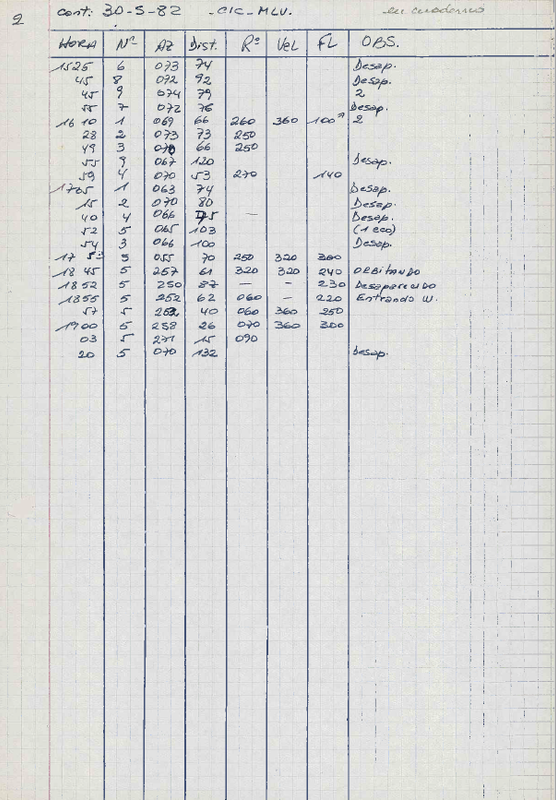 2 cont: 30-5-82 - CIC - MLV. en cuaderno
HORA Nº AZ Dist. Rº Vel FL OBS.
1525 6 073 74 Desap.
45 8 072 92 Desap.
45 9 074 79 2
55 7 072 76 Desap.
1610 1 069 66 260 360 100 2
28 2 073 73 250
49 3 66 250
55 9 067 120 Desap.
59 4 070 53 270 140
1705 1 063 74 Desap.
15 2 070 80 Desap.
40 4 066 Desap.
52 5 065 103 (1 eco)
54 3 066 100 Desap.
17 055 70 250 320 300
1845 5 257 61 320 320 240 ORBITANDO
1852 5 250 87 - - 230 Desapareciendo
1855 5 252 62 060 - 220 Entrando W.
57 5 40 060 360 250
1900 5 258 26 070 360 300
03 5 271 15 090
20 5 070 132 Desap.